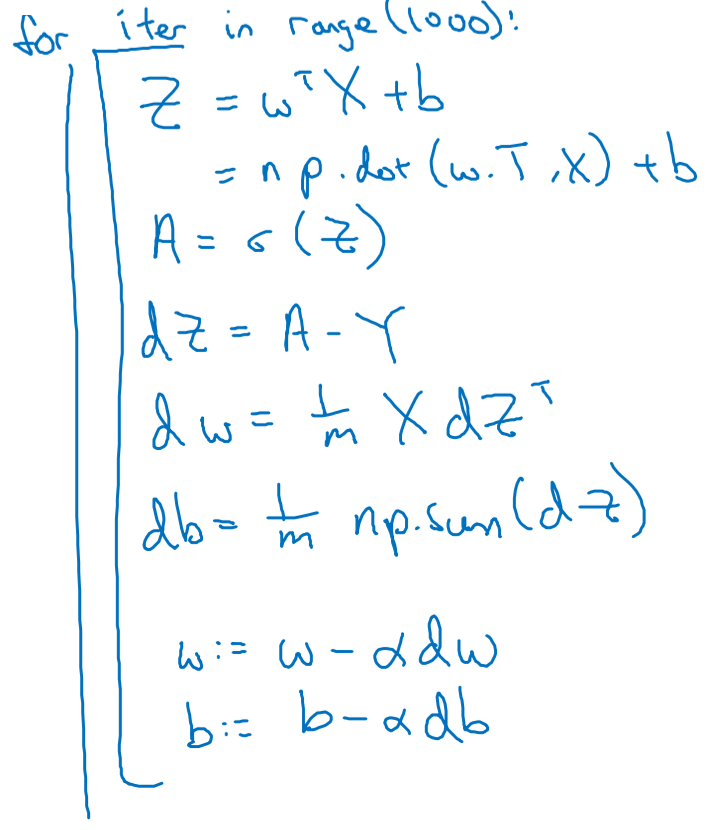 for iter in range(1000):
Z = wᵀX + b
= np.dot(w.T, X) + b
A = σ(Z)
dZ = A - Y
dw = 1/m X dZᵀ
db = 1/m np.sum(dZ)
w := w - αdw
b := b - αdb